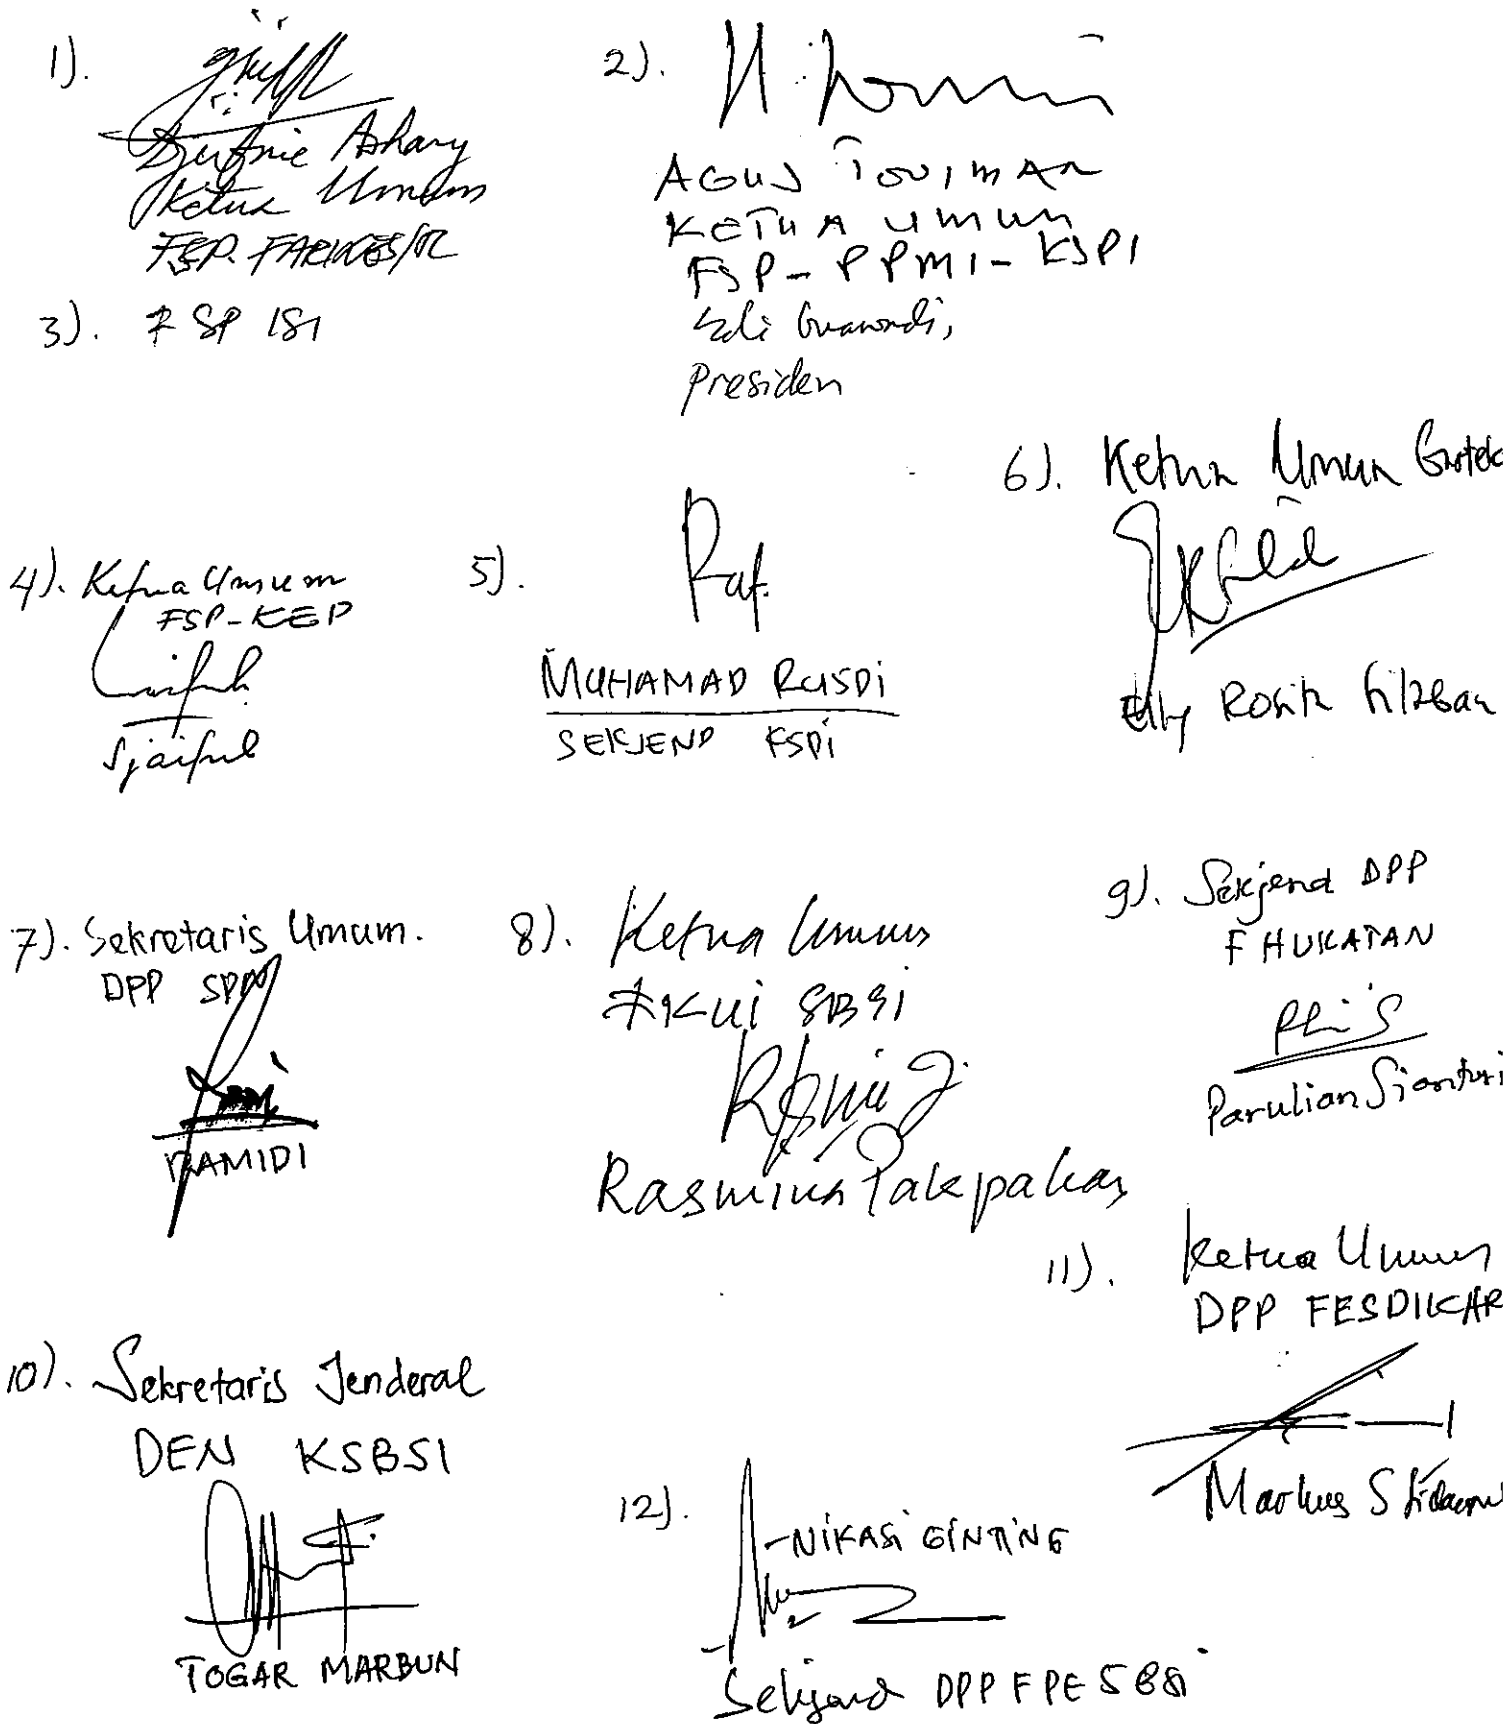 1).
Ashary
Ketua Umum
FSP. FARKES/R
2).
AGUS TOVIMAN
KETUA UMUM
FSP-PPMI-KSPI
3). FSP ISI
Presiden
4). Ketua Umum
FSP-KEP
Sjaiful
5).
MUHAMAD RUSDI
SEKJEND KSPI
6). Ketua Umum
Elly Rosita Silaban
7). Sekretaris Umum.
DPP
RAMIDI
8). Ketua Umum
FKUI SBSI
Rasmina Pakpahan
9). Sekjend DPP
F HUKATAN
Parulian Sianturi
10). Sekretaris Jenderal
DEN KSBSI
TOGAR MARBUN
11). Ketua Umum
DPP FESDIKAR
Markus S
12).
NIKASI GINTING
Sekjend DPP FPE SBSI